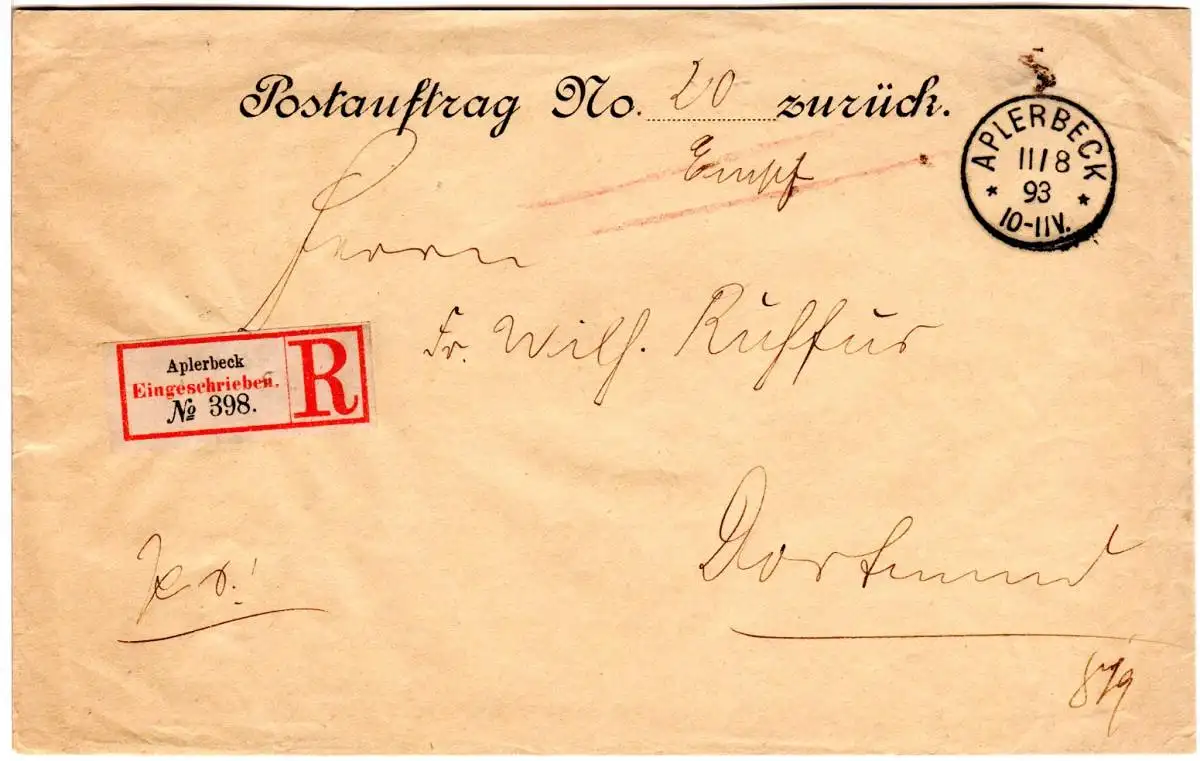 Postauftrag No. 20 zurück.
Empf
APLERBECK
11/8
93
10-11V.
Herrn
Fr. Wilh. Ruhfus
Aplerbeck
Eingeschrieben.
№ 398.
R
Dortmund